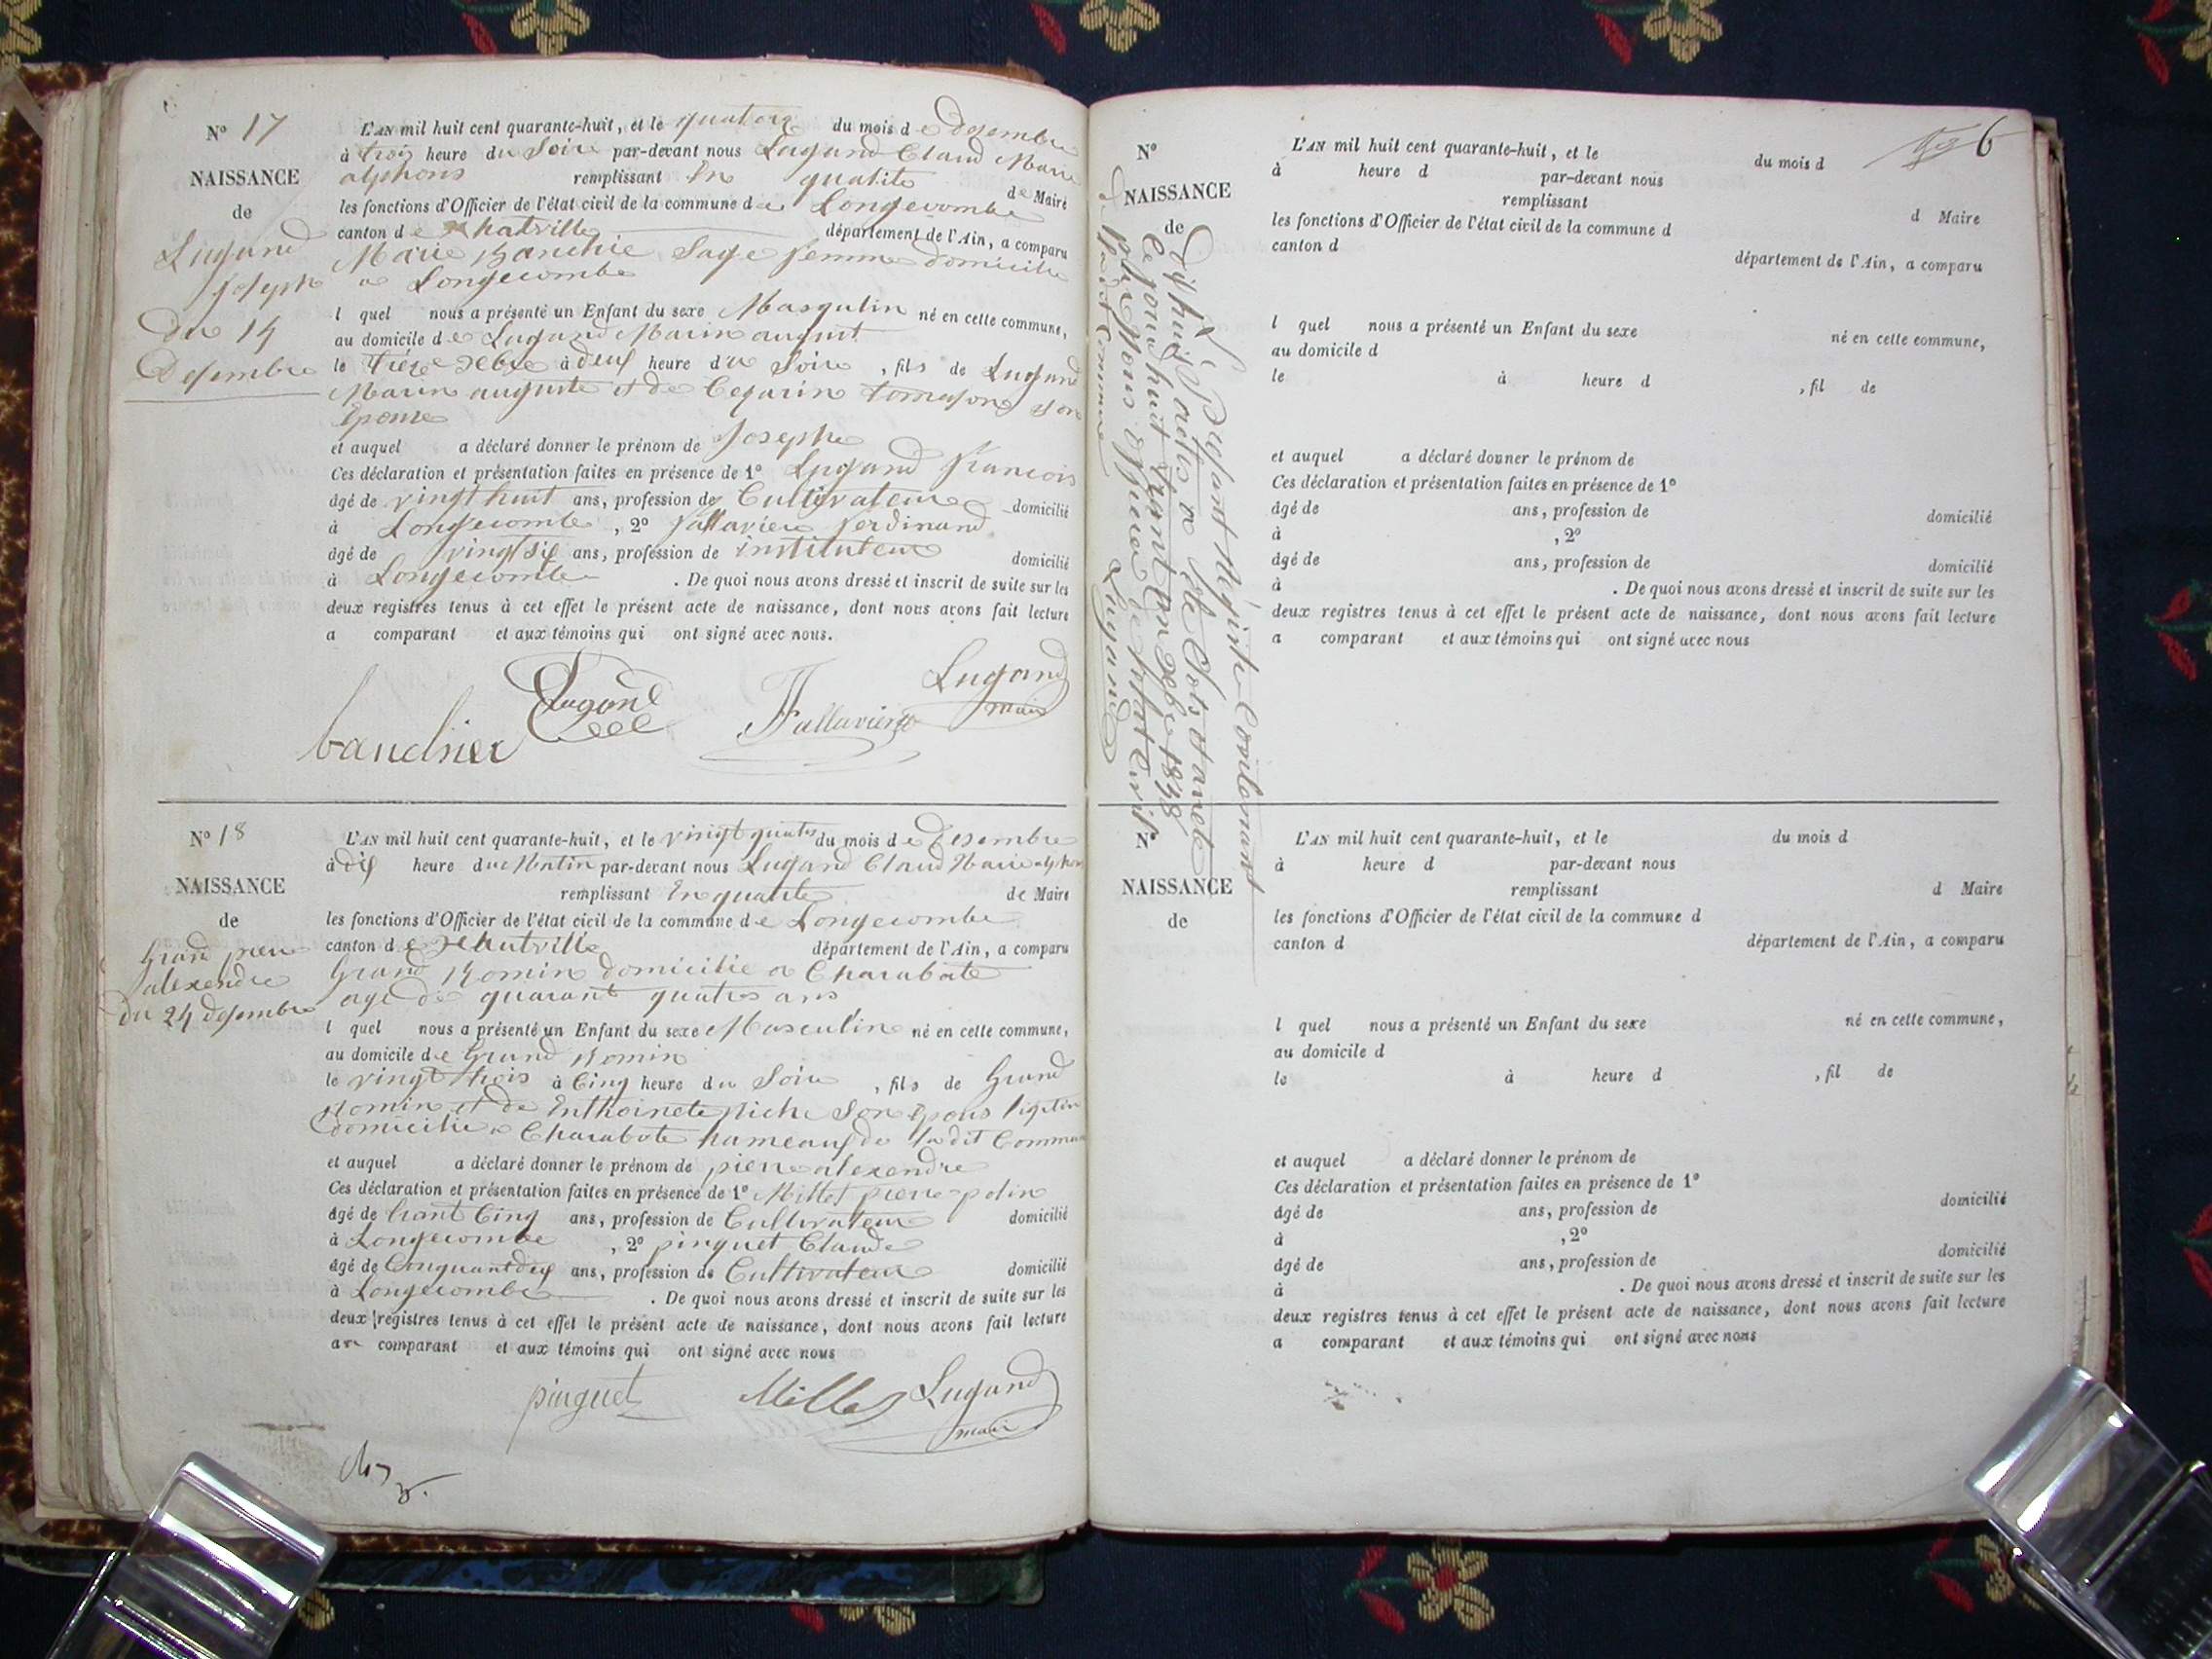 N° 17
NAISSANCE
de
Lugand
Joseph
du 14
Desembre
L'AN mil huit cent quarante-huit, et le quatorze du mois de desembre
à trois heure du Soire par-devant nous Lugand Claud Marie
alphons remplissant En qualite de Maire
les fonctions d'Officier de l'état civil de la commune de Longecombe
canton de hautville département de l'Ain, a comparu
Marie Sage femme domicilie
a Longecombe
l quel nous a présenté un Enfant du sexe Masqulin né en cette commune,
au domicile de Lugand Marin august
le Trése Xebre à deus heure du Soire, fils de Lugand
Marin auguste et de Cegarin tomason son
Epouse
et auquel a déclaré donner le prénom de Josephe
Ces déclaration et présentation faites en présence de 1° Lugand francois
âgé de vingt huit ans, profession de Cultivateur domicilié
à Longecombe, 2° fallavier ferdinand
âgé de vingt six ans, profession de instituteur domicilié
à Longecombe. De quoi nous avons dressé et inscrit de suite sur les
deux registres tenus à cet effet le présent acte de naissance, dont nous avons fait lecture
a comparant et aux témoins qui ont signé avec nous.
Lugand
Lugand
maire
Fallavier
N° 18
NAISSANCE
de
Grand pierre
alexendre
du 24 desembre
L'AN mil huit cent quarante-huit, et le vingt quatre du mois de desembre
à dix heure du Matin par-devant nous Lugand Claud Marie alphons
remplissant En qualite de Maire
les fonctions d'Officier de l'état civil de la commune de Longecombe
canton de hautville département de l'Ain, a comparu
Grand Romin domicilie a Charabote
age de quarant quatre ans
l quel nous a présenté un Enfant du sexe Masculin né en cette commune,
au domicile de Grand Romin
le vingt trois à Cinq heure du Soire, fils de Grand
Romin et de Enthoinete Son Epous
domicilie a Charabote hameaus de la dit Commune
et auquel a déclaré donner le prénom de pierre alexendre
Ces déclaration et présentation faites en présence de 1° Millet pierre
âgé de trant Cinq ans, profession de Cultivateur domicilié
à Longecombe, 2° pinguet Claude
âgé de Cinquant dix ans, profession de Cultivateur domicilié
à Longecombe. De quoi nous avons dressé et inscrit de suite sur les
deux registres tenus à cet effet le présent acte de naissance, dont nous avons fait lecture
au comparant et aux témoins qui ont signé avec nous
pinguet Millet Lugand
maire
6
Le Presant Régistre Contenant
Dix huit actes a été Clos et areté
Ce jourd'huit trant un Xebre 1848
par Nous officier de l'état Civil
de la dit Commune Lugand
N°
NAISSANCE
de
L'AN mil huit cent quarante-huit, et le du mois d
à heure d par-devant nous
remplissant d Maire
les fonctions d'Officier de l'état civil de la commune d
canton d département de l'Ain, a comparu
l quel nous a présenté un Enfant du sexe né en cette commune,
au domicile d
le à heure d , fil de
et auquel a déclaré donner le prénom de
Ces déclaration et présentation faites en présence de 1°
âgé de ans, profession de domicilié
à , 2°
âgé de ans, profession de domicilié
à . De quoi nous avons dressé et inscrit de suite sur les
deux registres tenus à cet effet le présent acte de naissance, dont nous avons fait lecture
a comparant et aux témoins qui ont signé avec nous
N°
NAISSANCE
de
L'AN mil huit cent quarante-huit, et le du mois d
à heure d par-devant nous
remplissant d Maire
les fonctions d'Officier de l'état civil de la commune d
canton d département de l'Ain, a comparu
l quel nous a présenté un Enfant du sexe né en cette commune,
au domicile d
le à heure d , fil de
et auquel a déclaré donner le prénom de
Ces déclaration et présentation faites en présence de 1°
âgé de ans, profession de domicilié
à , 2°
âgé de ans, profession de domicilié
à . De quoi nous avons dressé et inscrit de suite sur les
deux registres tenus à cet effet le présent acte de naissance, dont nous avons fait lecture
a comparant et aux témoins qui ont signé avec nous